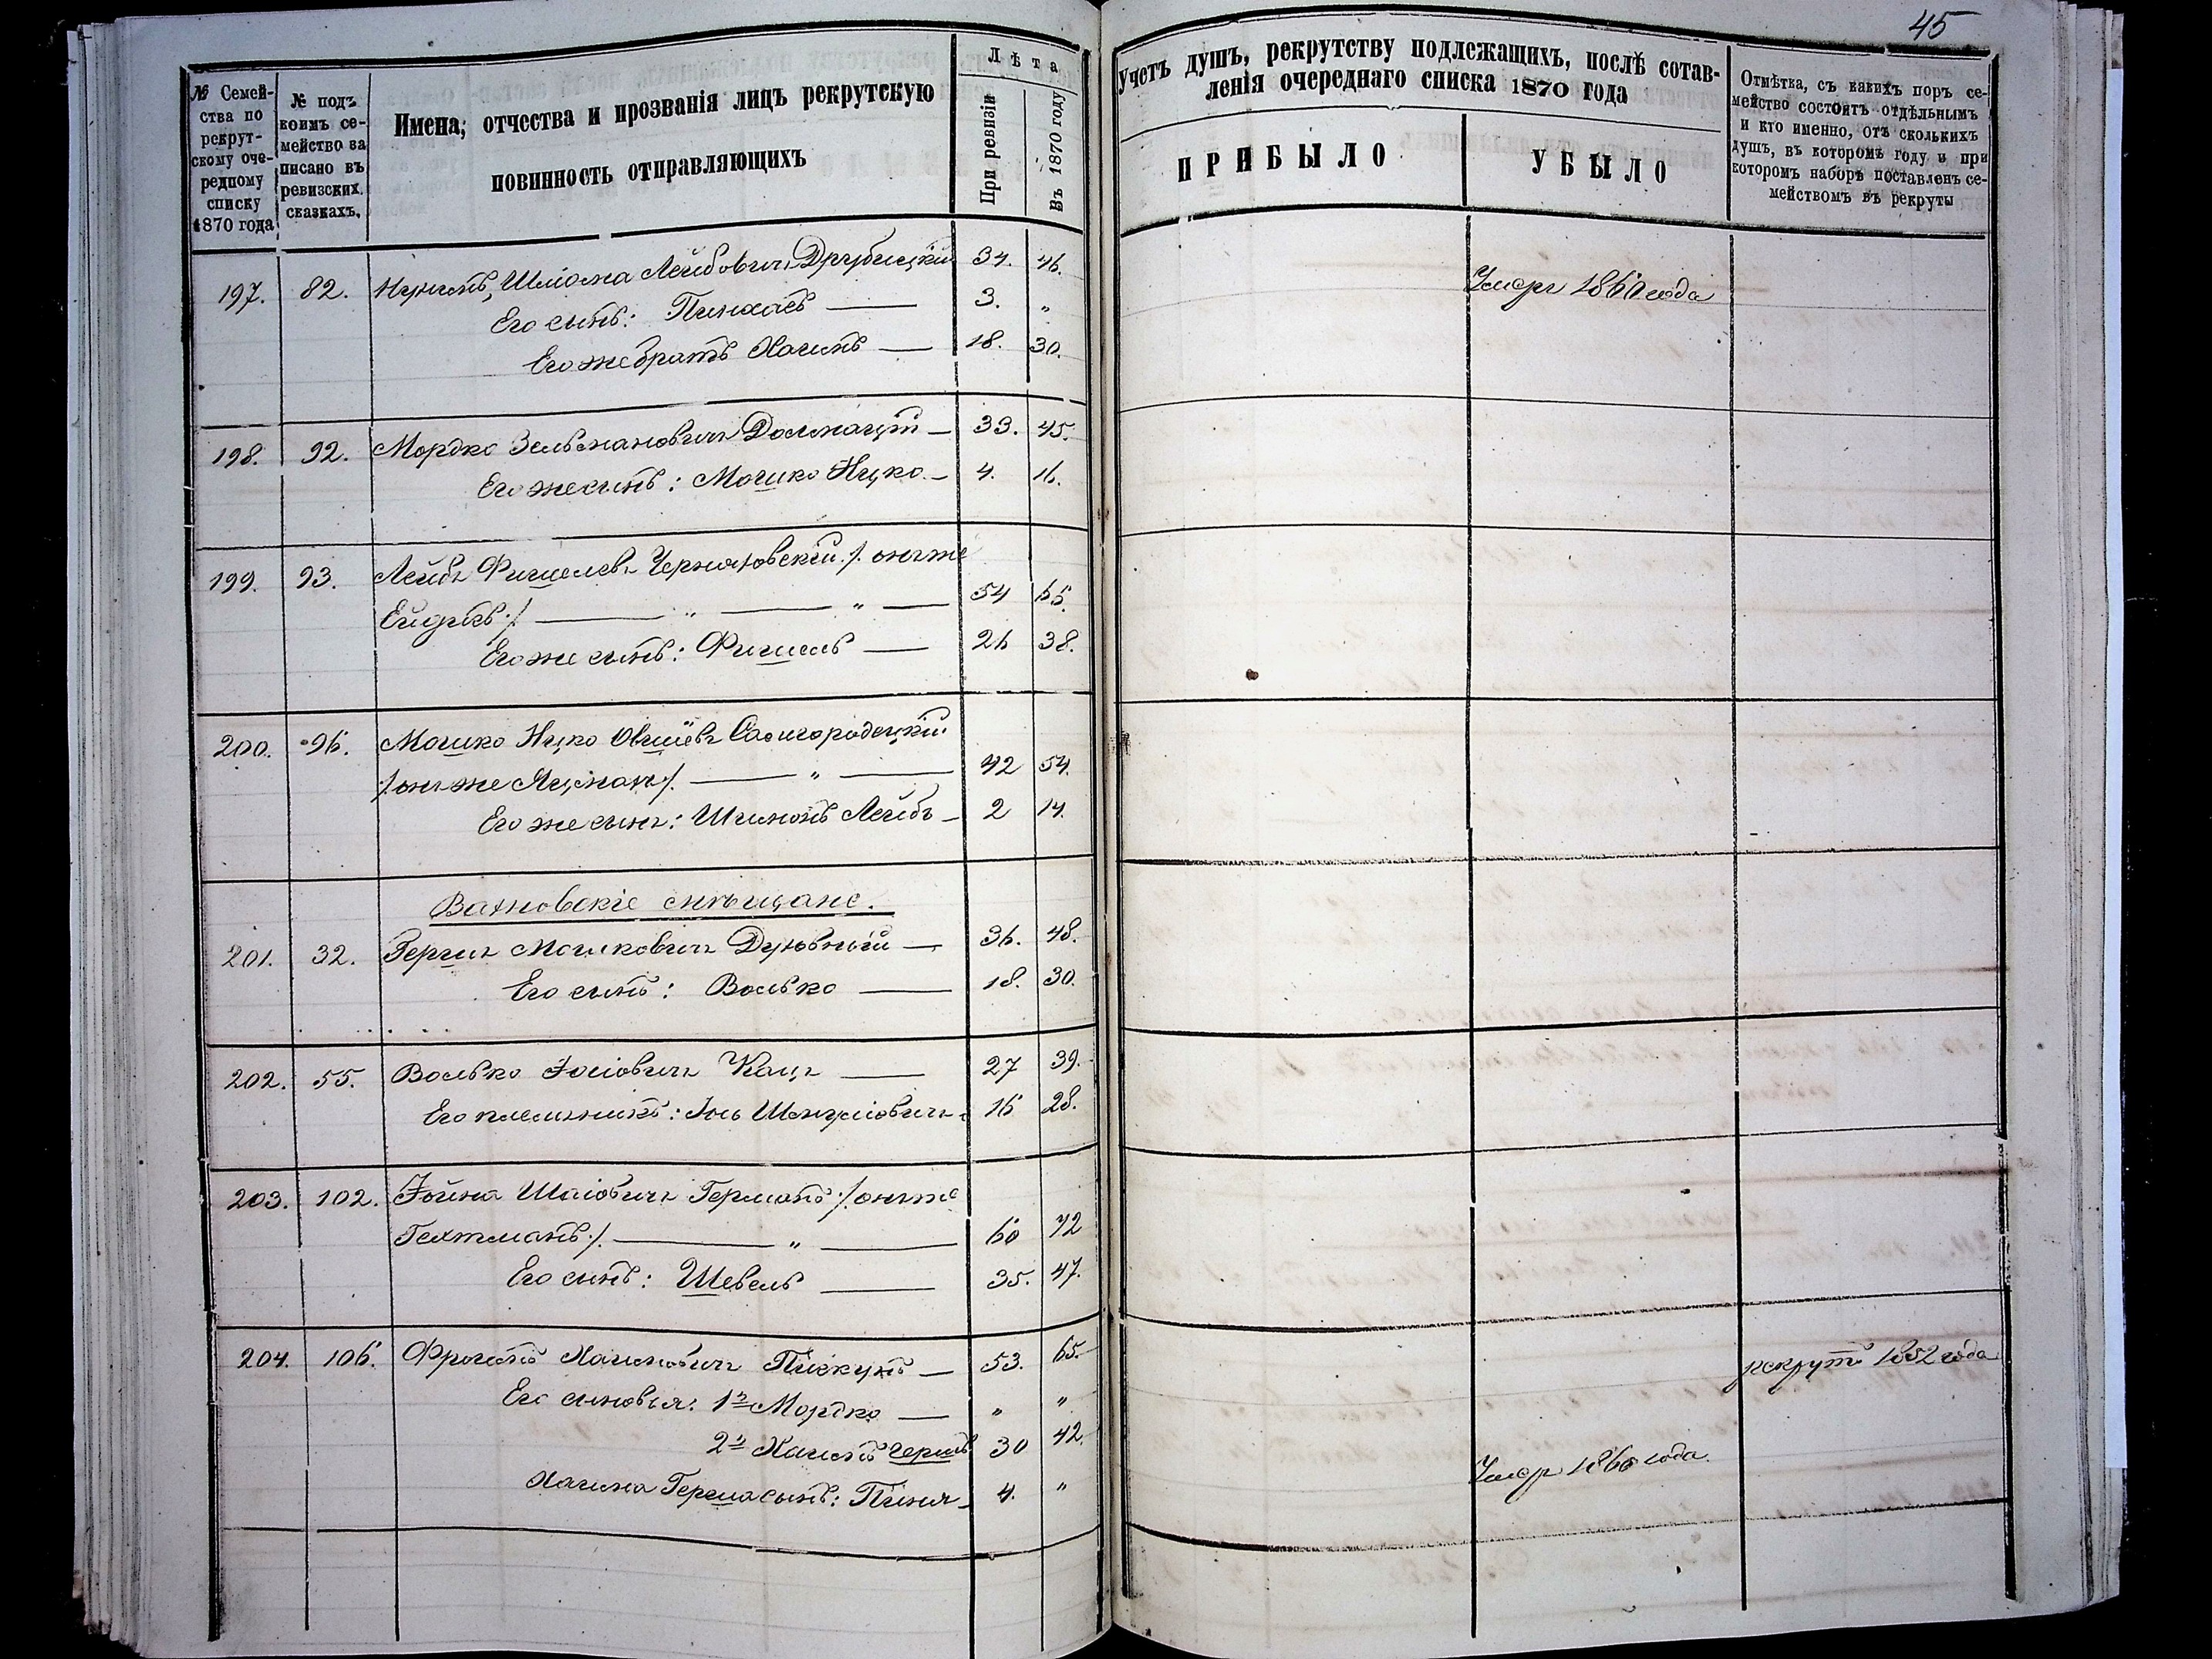 45
№ Семей-
ства по
рекрут-
скому оче-
редному
списку
1870 года
№ подъ
коимъ се-
мейство за
писано въ
ревизских.
сказкахъ.
Имена, отчества и прозванія лицъ рекрутскую
повинность отправляющихъ
Лѣта
При ревизіи
Въ 1870 году
Учетъ душъ, рекрутству подлежащихъ, послѣ сотав-
ленія очереднаго списка 1870 года
ПРИБЫЛО
УБЫЛО
Отмѣтка, съ какихъ поръ се-
мейство состоитъ отдѣльнымъ
и кто именно, отъ сколькихъ
душъ, въ которомъ году и при
которомъ наборѣ поставленъ се-
мействомъ въ рекруты
197. 82. Шліома Лейбовичъ Друбецкій 34. 46.
Его сынъ: Пинхасъ — 3. „ Умеръ 1860 года
Его же братъ Хаимъ — 18. 30.
198. 92. Мордко Зельмановичъ — 33. 45.
Его же сынъ: Мошко Ицко — 4. 16.
199. 93. Лейбъ Фишелевъ Черняховскій /: онъ же
:/ — „ — „ — 54 65.
Его же сынъ: Фишель — 26 38.
200. 96. Мошко Ицко Овшіевъ Самгородецкій
/: онъ же Яцманъ :/ — „ — 42 54.
Его же сынъ: Шимонъ Лейбъ — 2 14.
Вахновскіе мѣщане.
201. 32. Гершъ Мошковичъ — 36. 48.
Его сынъ: Волько — 18. 30.
202. 55. Волько Іосіовичъ Кацъ — 27 39.
Его племянникъ: Іось 16 28.
203. 102. Іойна Шаіовичъ Германъ /: онъ же
Гехтманъ :/ — „ — 60 72
Его сынъ: Шевель — 35. 47.
204. 106. Фроимъ Хаимовичъ — 53. 65.
Его сыновья: 1й Мордко — „ „ рекрут. 1852 года
2й Хаимъ Гершъ 30 42.
Хаима Герша сынъ: Пиня — 4. „ Умеръ 1860 года.